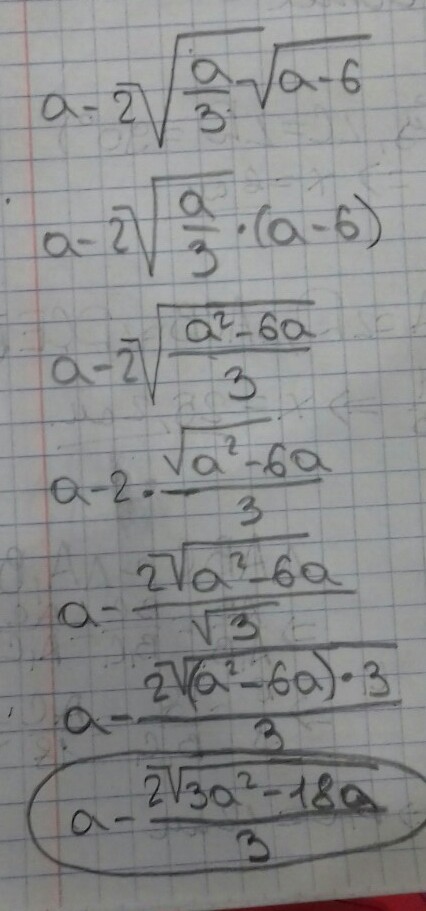 a - 2√(a/3) - √(a-6)
a - 2√(a/3 · (a-6))
a - 2√((a² - 6a)/3)
a - 2 · √(a² - 6a)/3
a - 2√(a² - 6a)/√3
a - 2√((a² - 6a) · 3)/3
a - 2√(3a² - 18a)/3